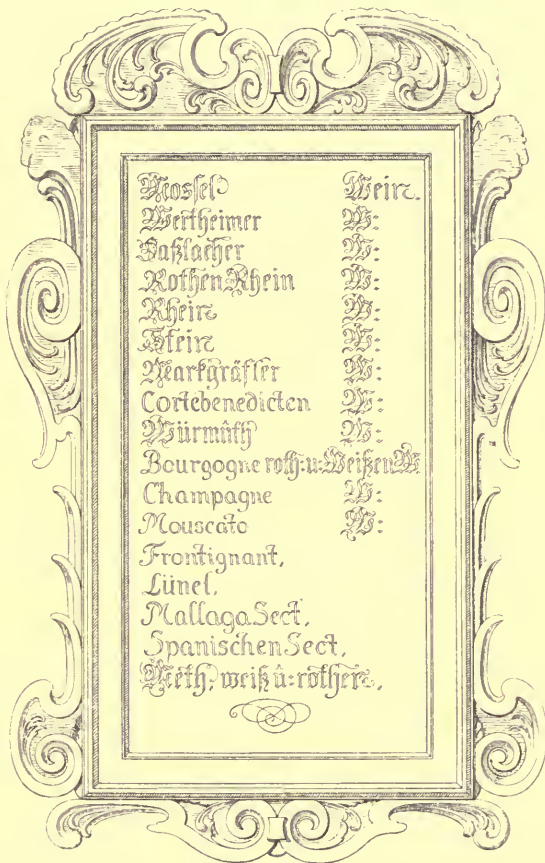 Mossel Wein.
Wertheimer W:
Haßlacher W:
Rothen Rhein W:
Rhein W:
Stein W:
Markgräfler W:
Cortebenedicten W:
Würmüth W:
Bourgogne roth: u: Weißen W.
Champagne W:
Mouscato W:
Frontignant,
Lünel,
Mallaga Sect,
Spanischen Sect,
Meth, weiß û: rothen,